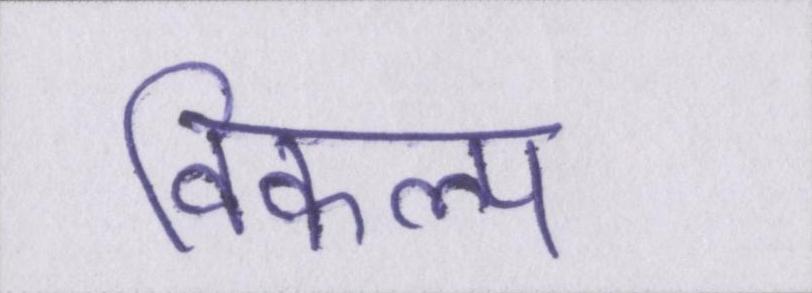 विकल्प